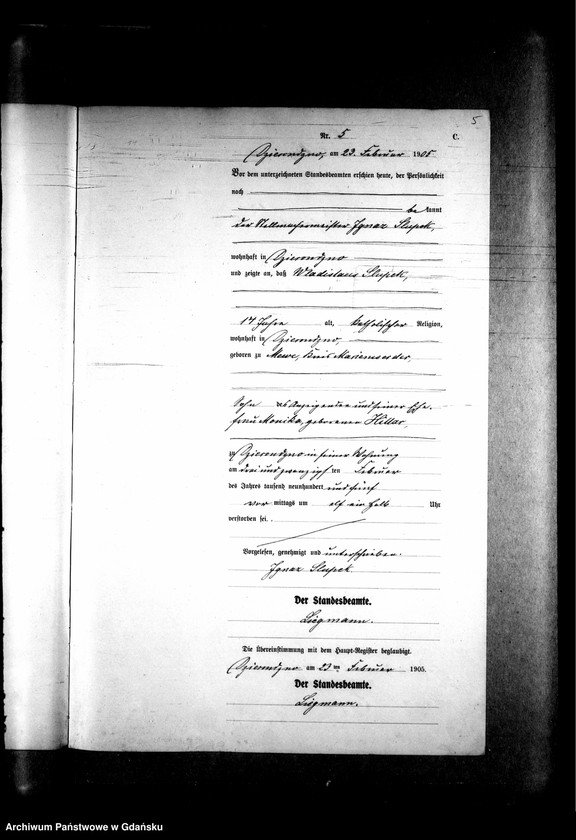 5
Nr. 5 C.
Dzierondzno, am 23. Februar 1905
Vor dem unterzeichneten Standesbeamten erschien heute, der Persönlichkeit
nach
bekannt
der Stellmachermeister Ignaz Slupek,
wohnhaft in Dzierondzno
und zeigte an, daß Wladislaus Slupek,
17 Jahre alt, katholischer Religion,
wohnhaft in Dzierondzno,
geboren zu Mewe, Kreis Marienwerder,
Sohn des Anzeigenden und seiner Ehe-
frau Monika, geborenen Hillar,
zu Dzierondzno in seiner Wohnung
am drei und zwanzigsten Februar
des Jahres tausend neunhundert und fünf
vor mittags um elf ein halb Uhr
verstorben sei.
Vorgelesen, genehmigt und unterschrieben.
Ignaz Slupek
Der Standesbeamte.
Liegmann.
Die Übereinstimmung mit dem Haupt-Register beglaubigt.
Dzierondzno am 23ten Februar 1905.
Der Standesbeamte.
Liegmann.
Archiwum Państwowe w Gdańsku